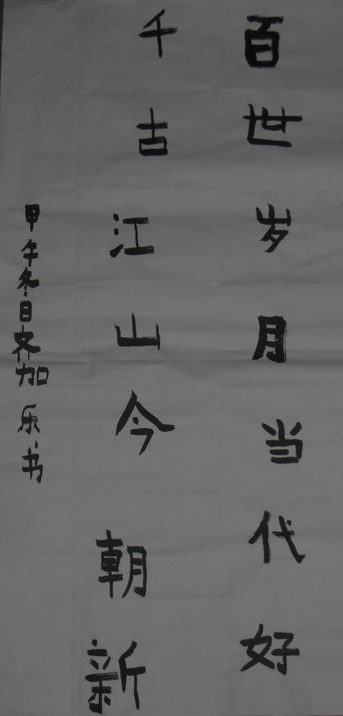 百世岁月当代好
千古江山今朝新
甲午冬日文加乐书